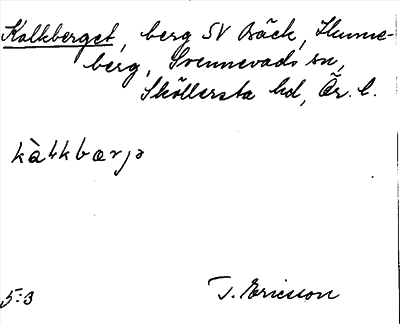 Kalkberget, berg SV Bäck, Hunne-
berg, Svennevads sn,
Sköllersta hd, Ör. l.
kàłkbærjə
5:3
T. Ericsson